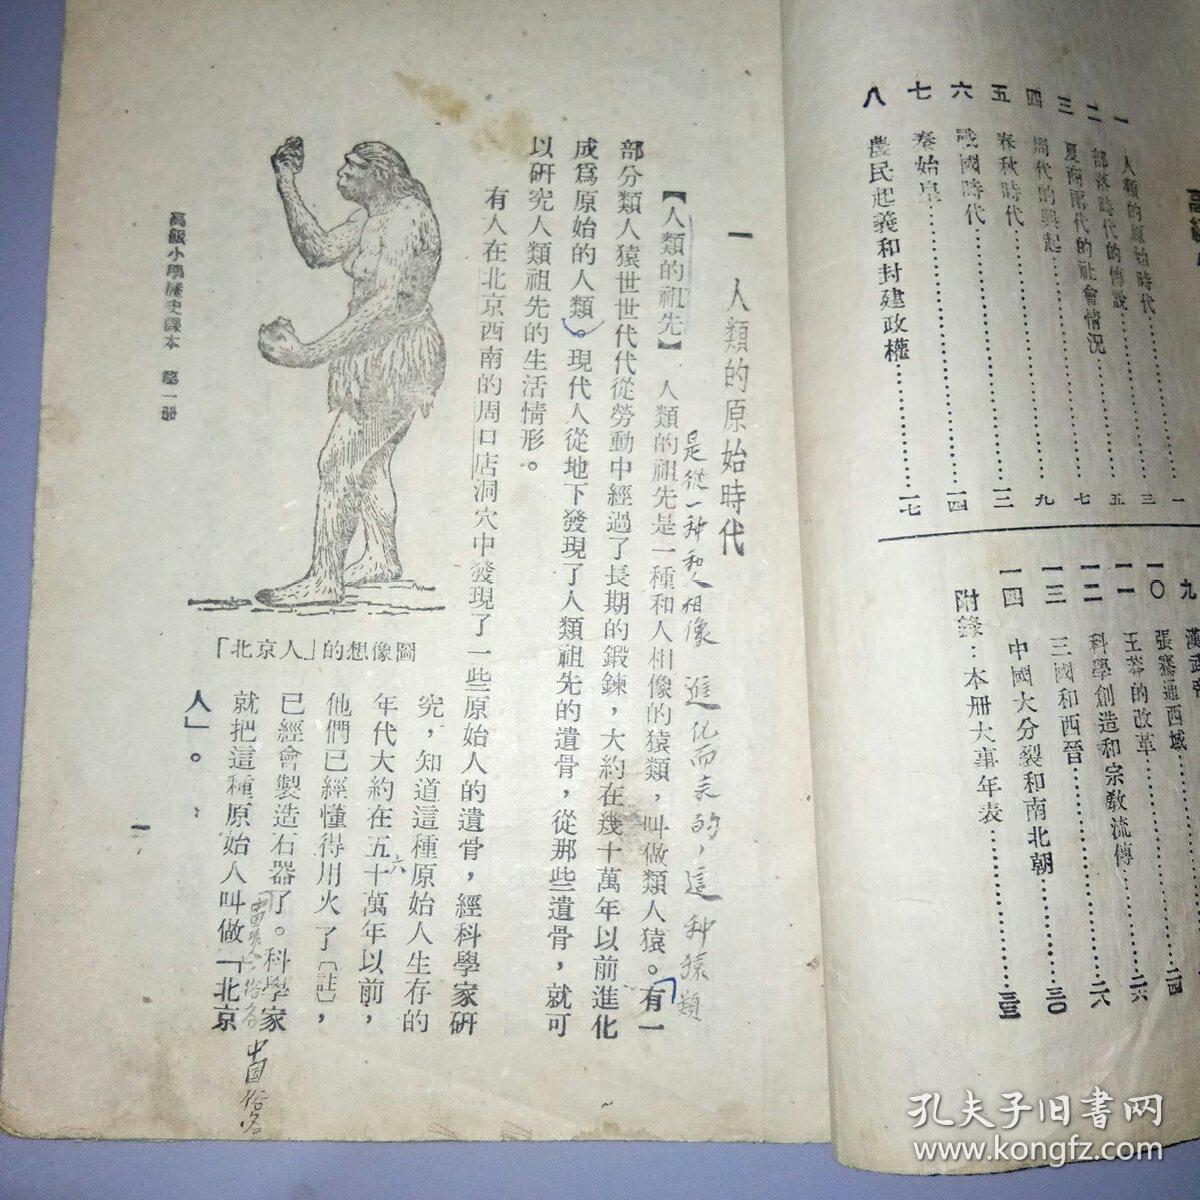 一 人類的原始時代………一
二 部落時代的傳說………三
三 夏商兩代的社會情況………五
四 周代的興起………七
五 春秋時代………九
六 戰國時代………一二
七 秦始皇………一四
八 農民起義和封建政權………一七
九
一〇 張騫通西域………二四
一一 王莽的改革………二六
一二 科學創造和宗教流傳………二八
一三 三國和西晉………三〇
一四 中國大分裂和南北朝………三三
附錄：本册大事年表
一 人類的原始時代
【人類的祖先】 人類的祖先是一種和人相像的猿類，叫做類人猿。有一
是從一种和人相像 進化而来的，這种猿類
部分類人猿世世代代從勞動中經過了長期的鍛鍊，大約在幾十萬年以前進化
成爲原始的人類。現代人從地下發現了人類祖先的遺骨，從那些遺骨，就可
以研究人類祖先的生活情形。
有人在北京西南的周口店洞穴中發現了一些原始人的遺骨，經科學家研
究，知道這種原始人生存的
年代大約在五十萬年以前，
六
他們已經懂得用火了〔註〕，
已經會製造石器了。科學家
就把這種原始人叫做「北京
人」。
中国俗名
「北京人」的想像圖
高級小學歷史課本 第一册
一
孔夫子旧書网
www.kongfz.com